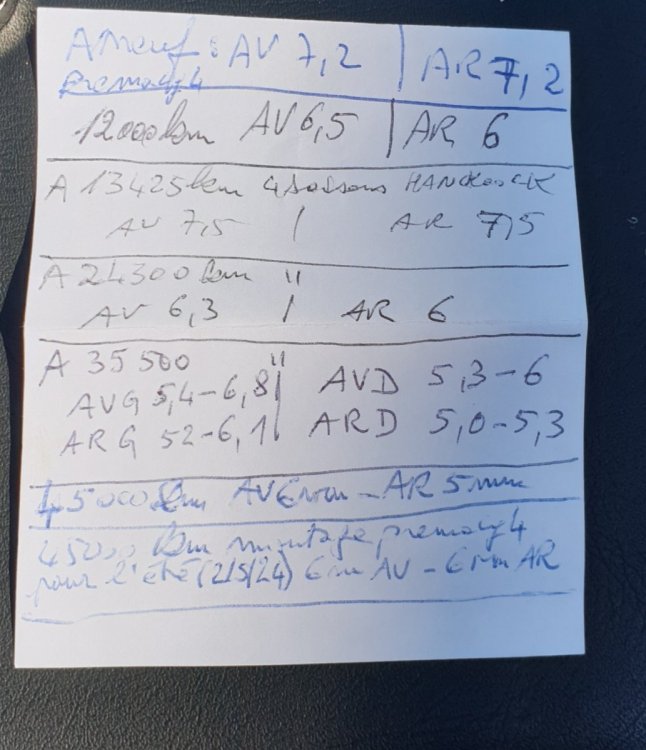 A neuf : AV 7,2 | AR 7,2
premacy 4
12000km AV 6,5 | AR 6
A 13425km 4 saisons HANCKOOCK
AV 7,5 | AR 7,5
A 24300 km "
AV 6,3 | AR 6
A 35 500 "
AVG 5,4-6,8 | AVD 5,3-6
ARG 52-6,1 | ARD 5,0-5,3
45000 km AV 6mm - AR 5 mm
45000 km montage premacy 4
pour l'été (2/5/24) 6mm AV - 6mm AR